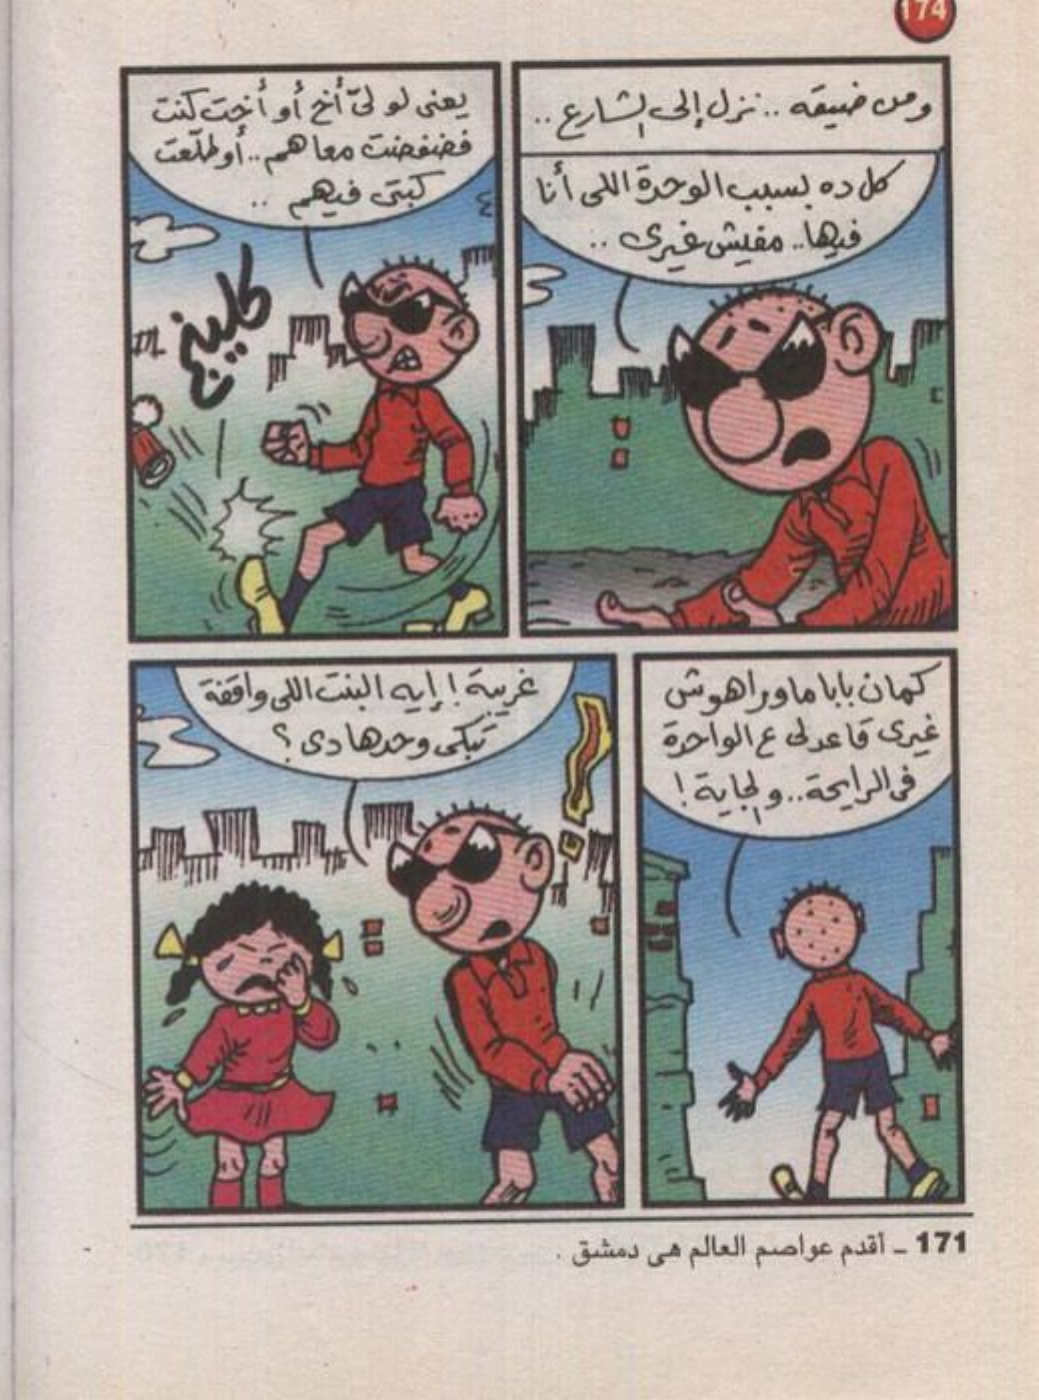 174
ومن ضيقه .. نزل إلى الشارع ..
كل ده بسبب الوحدة اللى أنا
فيها.. مفيش غيرى ..
يعنى لو لىّ أخ أو أخت كنت
فضفضت معاهم .. أو طلّعت
كبتى فيهم ..
كليينج
كمان بابا ماوراهوش
غيرى قاعدلى ع الواحدة
فى الرايحة.. والجاية !
غريبة ! إيه البنت اللى واقفة
تبكى وحدها دى ؟
171 ـ أقدم عواصم العالم هى دمشق .